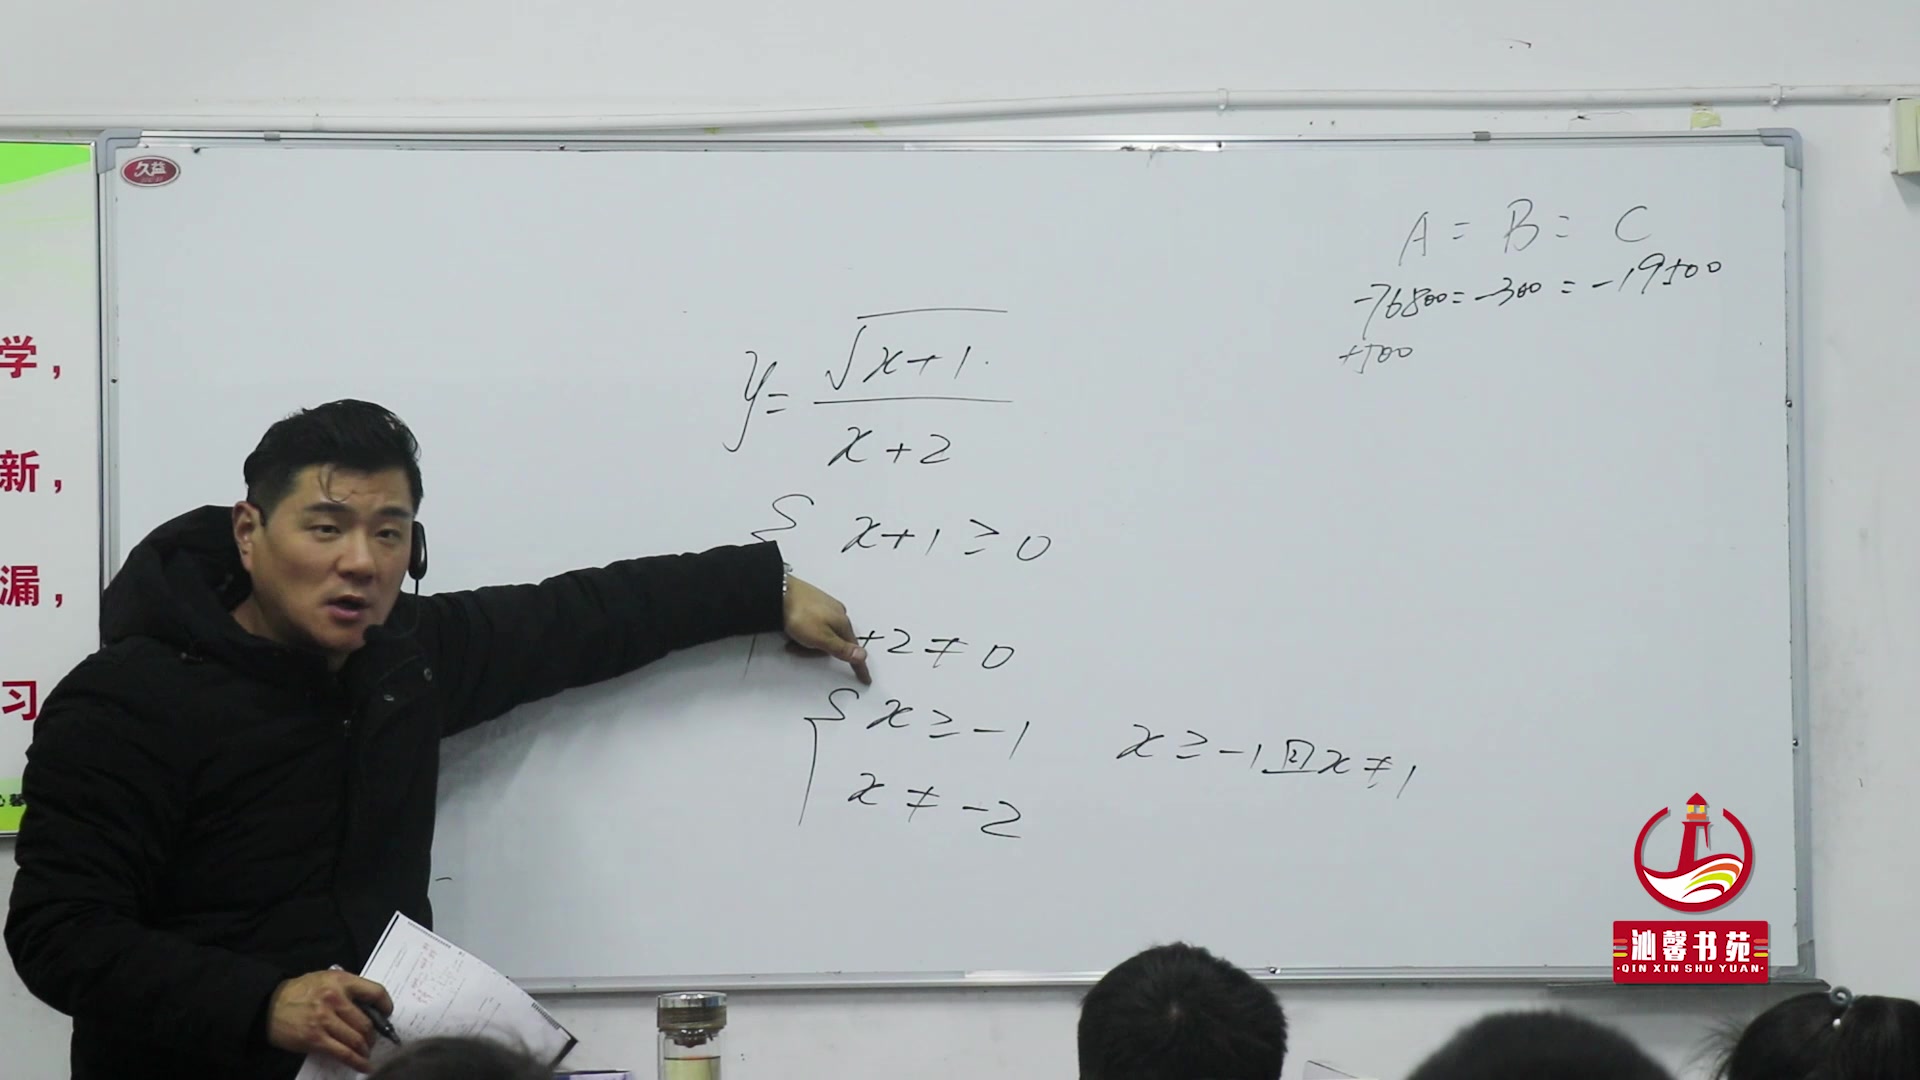 久益
学，
新，
漏，
习
心馨
A = B = C
-76800 = -300 = -19500
+500
y = √x+1
x+2
x+1 ≥ 0
+2 ≠ 0
x ≥ -1
x ≠ -2
x ≥ -1 且 x ≠ 1
沁馨书苑
·QIN XIN SHU YUAN·